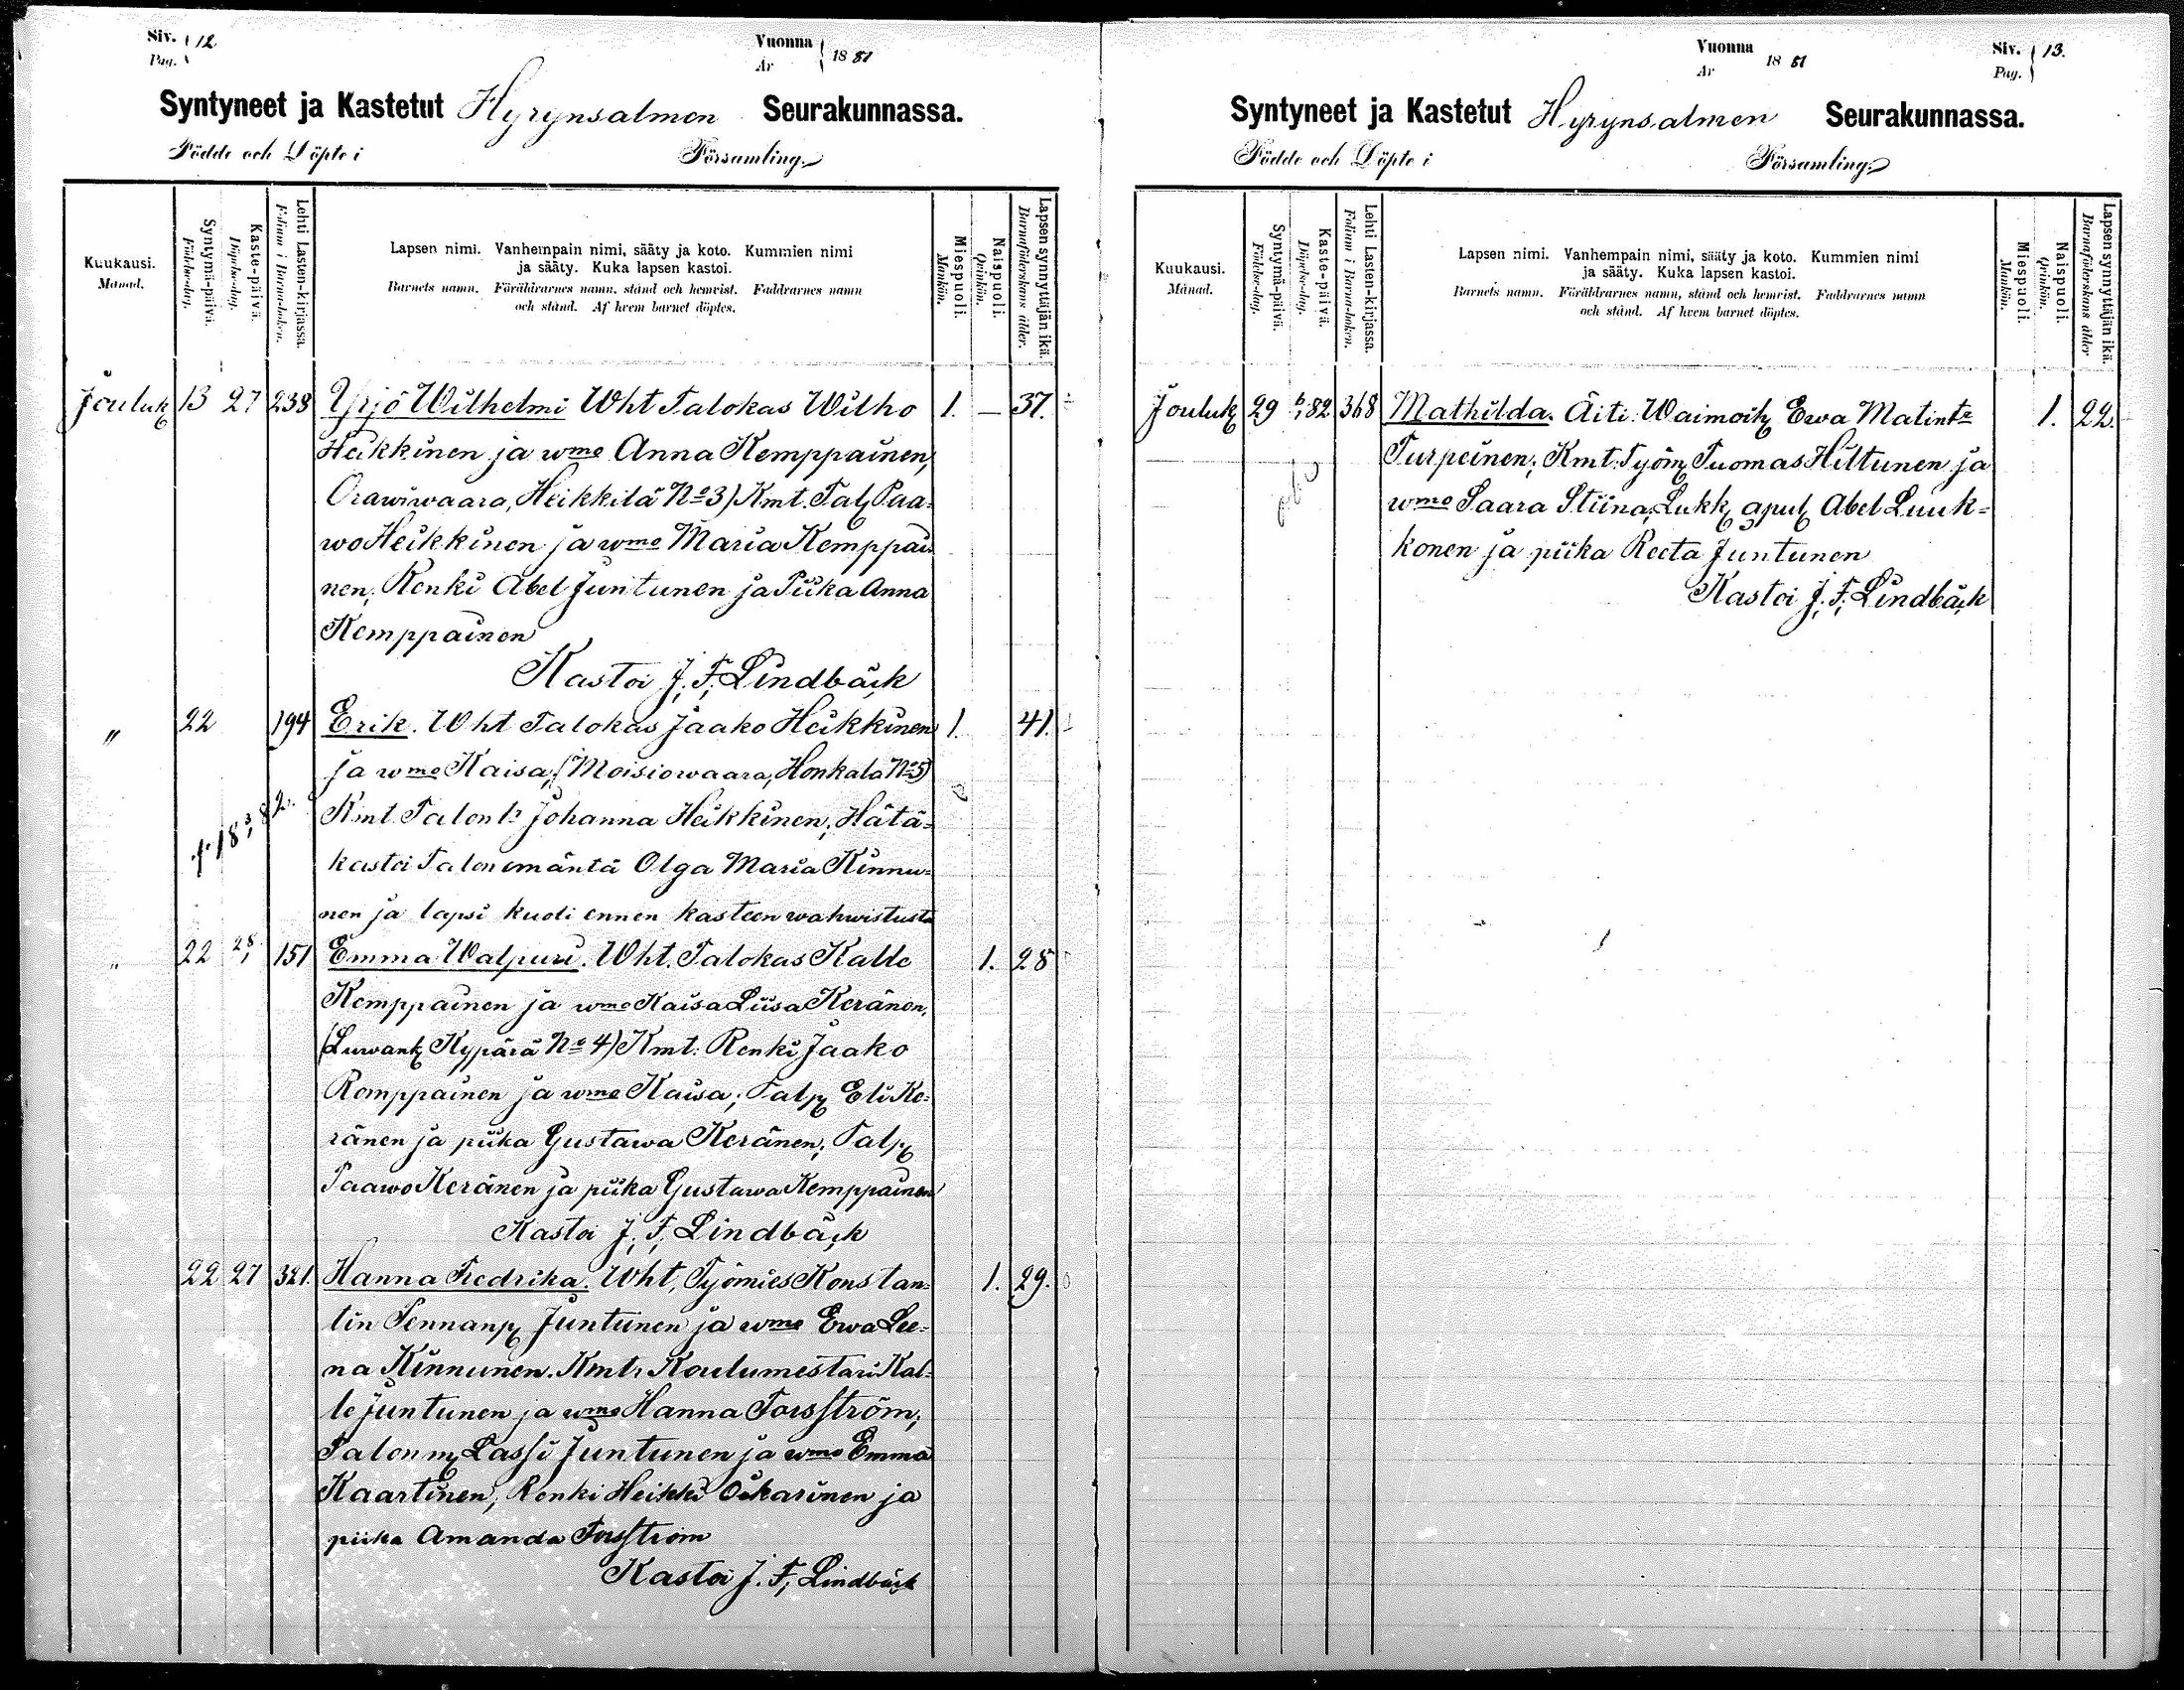 Siv. 12
Pag.
Vuonna 1881
År
Syntyneet ja Kastetut Hyrynsalmen Seurakunnassa.
Födde och Döpte i Församling.
Kuukausi.
Månad.
Syntymä-päivä.
Födelse-dag.
Kaste-päivä.
Döpelse-dag.
Lehti Lasten-kirjassa.
Folium i Barna-boken.
Lapsen nimi. Vanhempain nimi, sääty ja koto. Kummien nimi
ja sääty. Kuka lapsen kastoi.
Barnets namn. Föräldrarnes namn, stånd och hemvist. Faddrarnes namn
och stånd. Af hvem barnet döptes.
Miespuoli.
Mankön.
Naispuoli.
Qvinkön.
Lapsen synnyttäjän ikä.
Barnaföderskans ålder.
Jouluk 13 27 238 Yrjö Wilhelmi Wht Talokas Wilho 1. — 37.
Heikkinen ja wmo Anna Kemppainen,
Orawiwaara, Heikkilä No 3) Kmt. Tal Paa-
wo Heikkinen ja wmo Maria Kemppai
nen; Renki Abel Juntunen ja Piika Anna
Kemppainen
Kastoi J. F. Lindbäck
" 22 194 Erik. Wht Talokas Jaako Heikkinen 1. 41.
ja wmo Kaisa, (Moisiowaara, Honkala No 5)
Kmt. Talon tr Johanna Heikkinen; Hätä-
kastoi Talon emäntä Olga Maria Kinnu-
nen ja lapsi kuoli ennen kasteen wahwistusta
" 22 28 151 Emma Walpuri. Wht. Talokas Kalle 1. 28
Kemppainen ja wmo Kaisa Liisa Keränen,
(Luwank Kypärä No 4) Kmt: Renki Jaako
Romppainen ja wmo Kaisa; Talp Eli Ke-
ränen ja piika Gustawa Keränen; Talp
Paawo Keränen ja piika Gustawa Kemppainen
Kastoi J. F. Lindbäck
22 27 321. Hanna Fredrika. Wht, Työmies Konstan- 1. 29.
tin Pennanp Juntunen ja wmo Ewa Lee-
na Kinnunen. Kmt: Koulumestari Kal-
le Juntunen ja wmo Hanna Forsström;
Talon m Lassi Juntunen ja wmo Emma
Kaartinen; Renki Heikki Oikarinen ja
piika Amanda Forsström
Kastoi J. F. Lindbäck
Vuonna 1881
År
Siv. 13.
Pag.
Syntyneet ja Kastetut Hyrynsalmen Seurakunnassa.
Födde och Döpte i Församling.
Kuukausi.
Månad.
Syntymä-päivä.
Födelse-dag.
Kaste-päivä.
Döpelse-dag.
Lehti Lasten-kirjassa.
Folium i Barna-boken.
Lapsen nimi. Vanhempain nimi, sääty ja koto. Kummien nimi
ja sääty. Kuka lapsen kastoi.
Barnets namn. Föräldrarnes namn, stånd och hemvist. Faddrarnes namn
och stånd. Af hvem barnet döptes.
Miespuoli.
Mankön.
Naispuoli.
Qvinkön.
Lapsen synnyttäjän ikä.
Barnaföderskans ålder
Jouluk 29 82 368 Mathilda. Äiti: Waimoih Ewa Matintr 1. 22.
Turpeinen; Kmt: Työm Tuomas Hiltunen ja
wmo Saara Stiina; Lukk apul Abel Luuk-
konen ja piika Reeta Juntunen
Kastoi J. F. Lindbäck